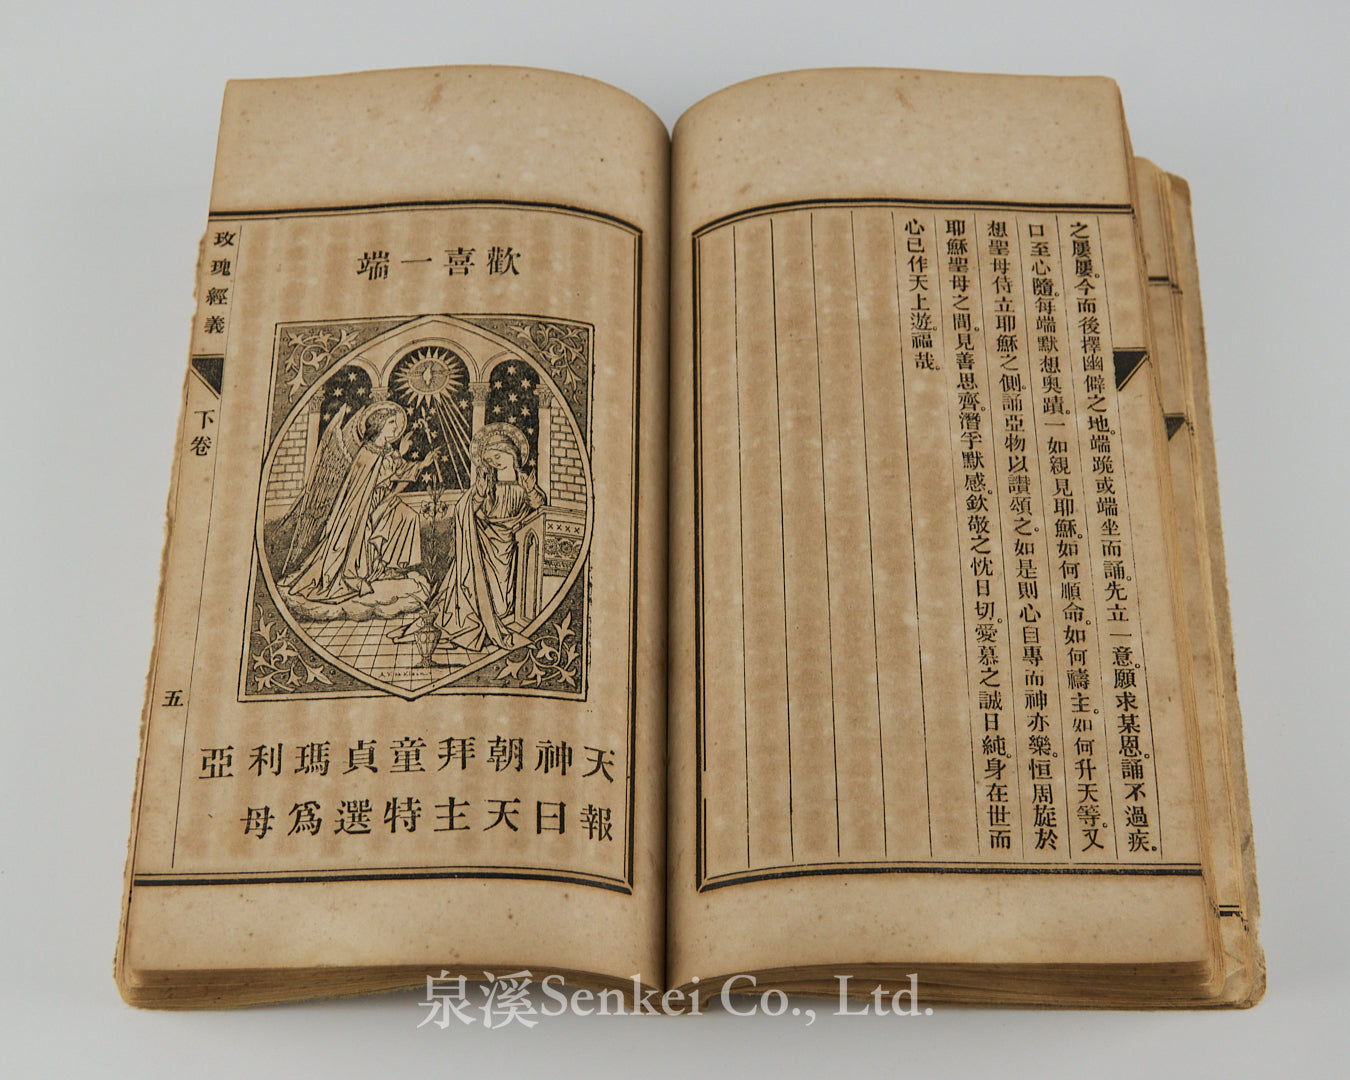 之屢屢。今而後擇幽僻之地。端跪或端坐而誦。先立一意。願求某恩。誦不過疾。
口至心隨。每端默想奧蹟。一如親見耶穌。如何順命。如何禱主。如何升天等。又
想聖母侍立耶穌之側。誦亞物以讚頌之。如是則心自專而神亦樂。恒周旋於
耶穌聖母之間。見善思齊。潛乎默感。欽敬之忱日切。愛慕之誠日純。身在世而
心已作天上遊。福哉。
歡喜一端
天神朝拜童貞瑪利亞
報曰天主特選爲母
玫瑰經義
下卷
五
泉溪Senkei Co., Ltd.